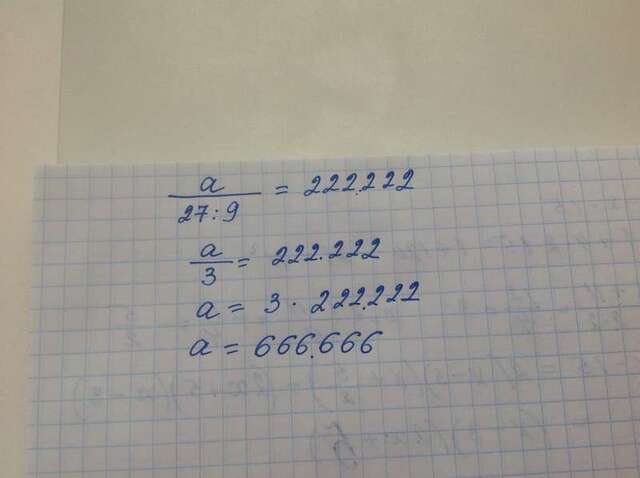 a / 27:9 = 222.222
a / 3 = 222.222
a = 3 · 222.222
a = 666.666